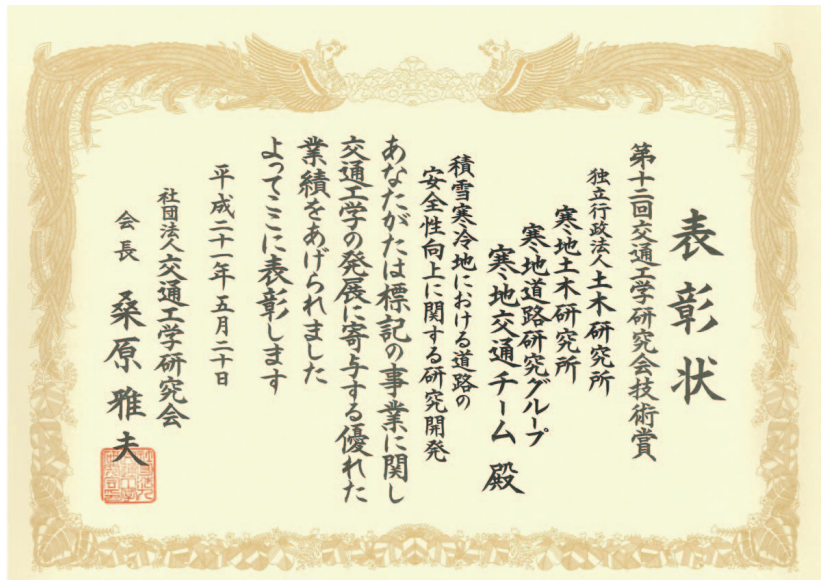 表彰状
第十二回交通工学研究会技術賞
独立行政法人土木研究所
寒地土木研究所
寒地道路研究グループ
寒地交通チーム 殿
積雪寒冷地における道路の
安全性向上に関する研究開発
あなたがたは標記の事業に関し
交通工学の発展に寄与する優れた
業績をあげられました
よってここに表彰します
平成二十一年五月二十日
社団法人交通工学研究会
会長 桑原雅夫